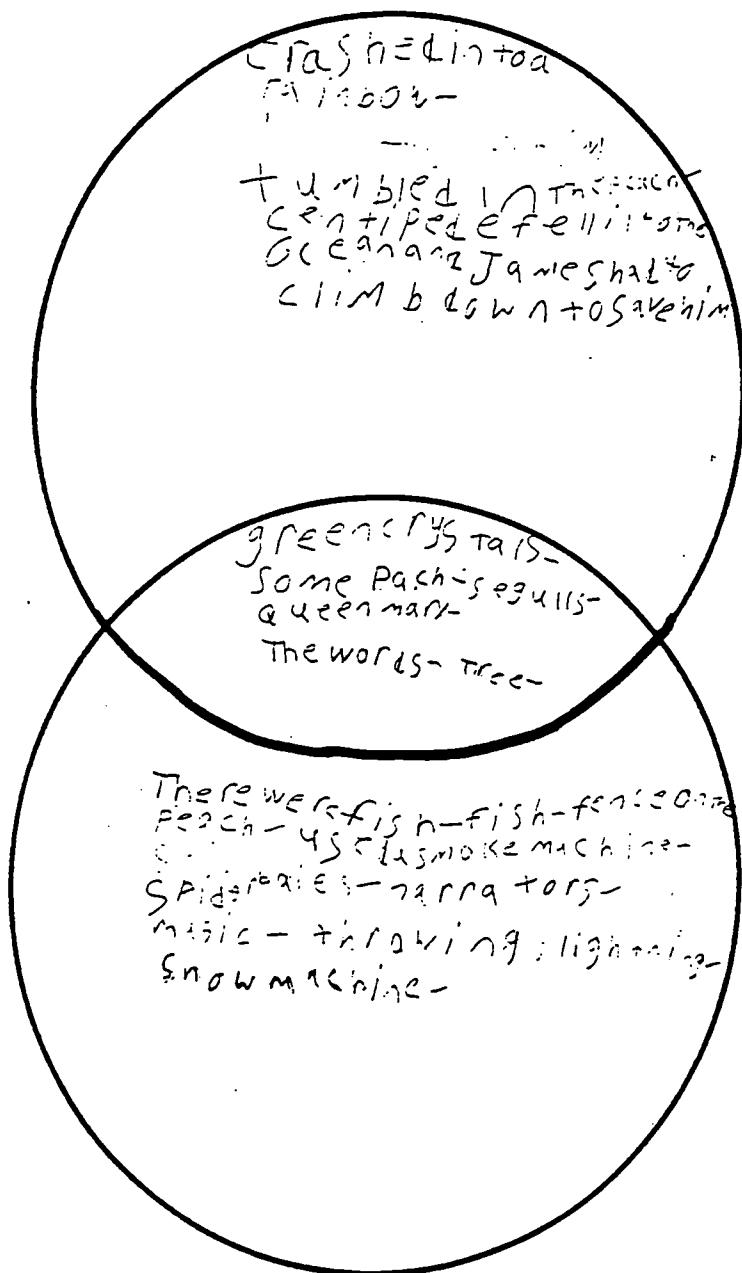 Crashed into a
rainbow-
tumbled in the peach-
centipede fell into the
ocean and James had to
climb down to save him
green crystals-
some Pach-segulls-
queen mary-
The words- Tree-
There were fish-fish-fence on the
peach- used smoke machine-
narrators-
music- throwing lightning-
snow machine-